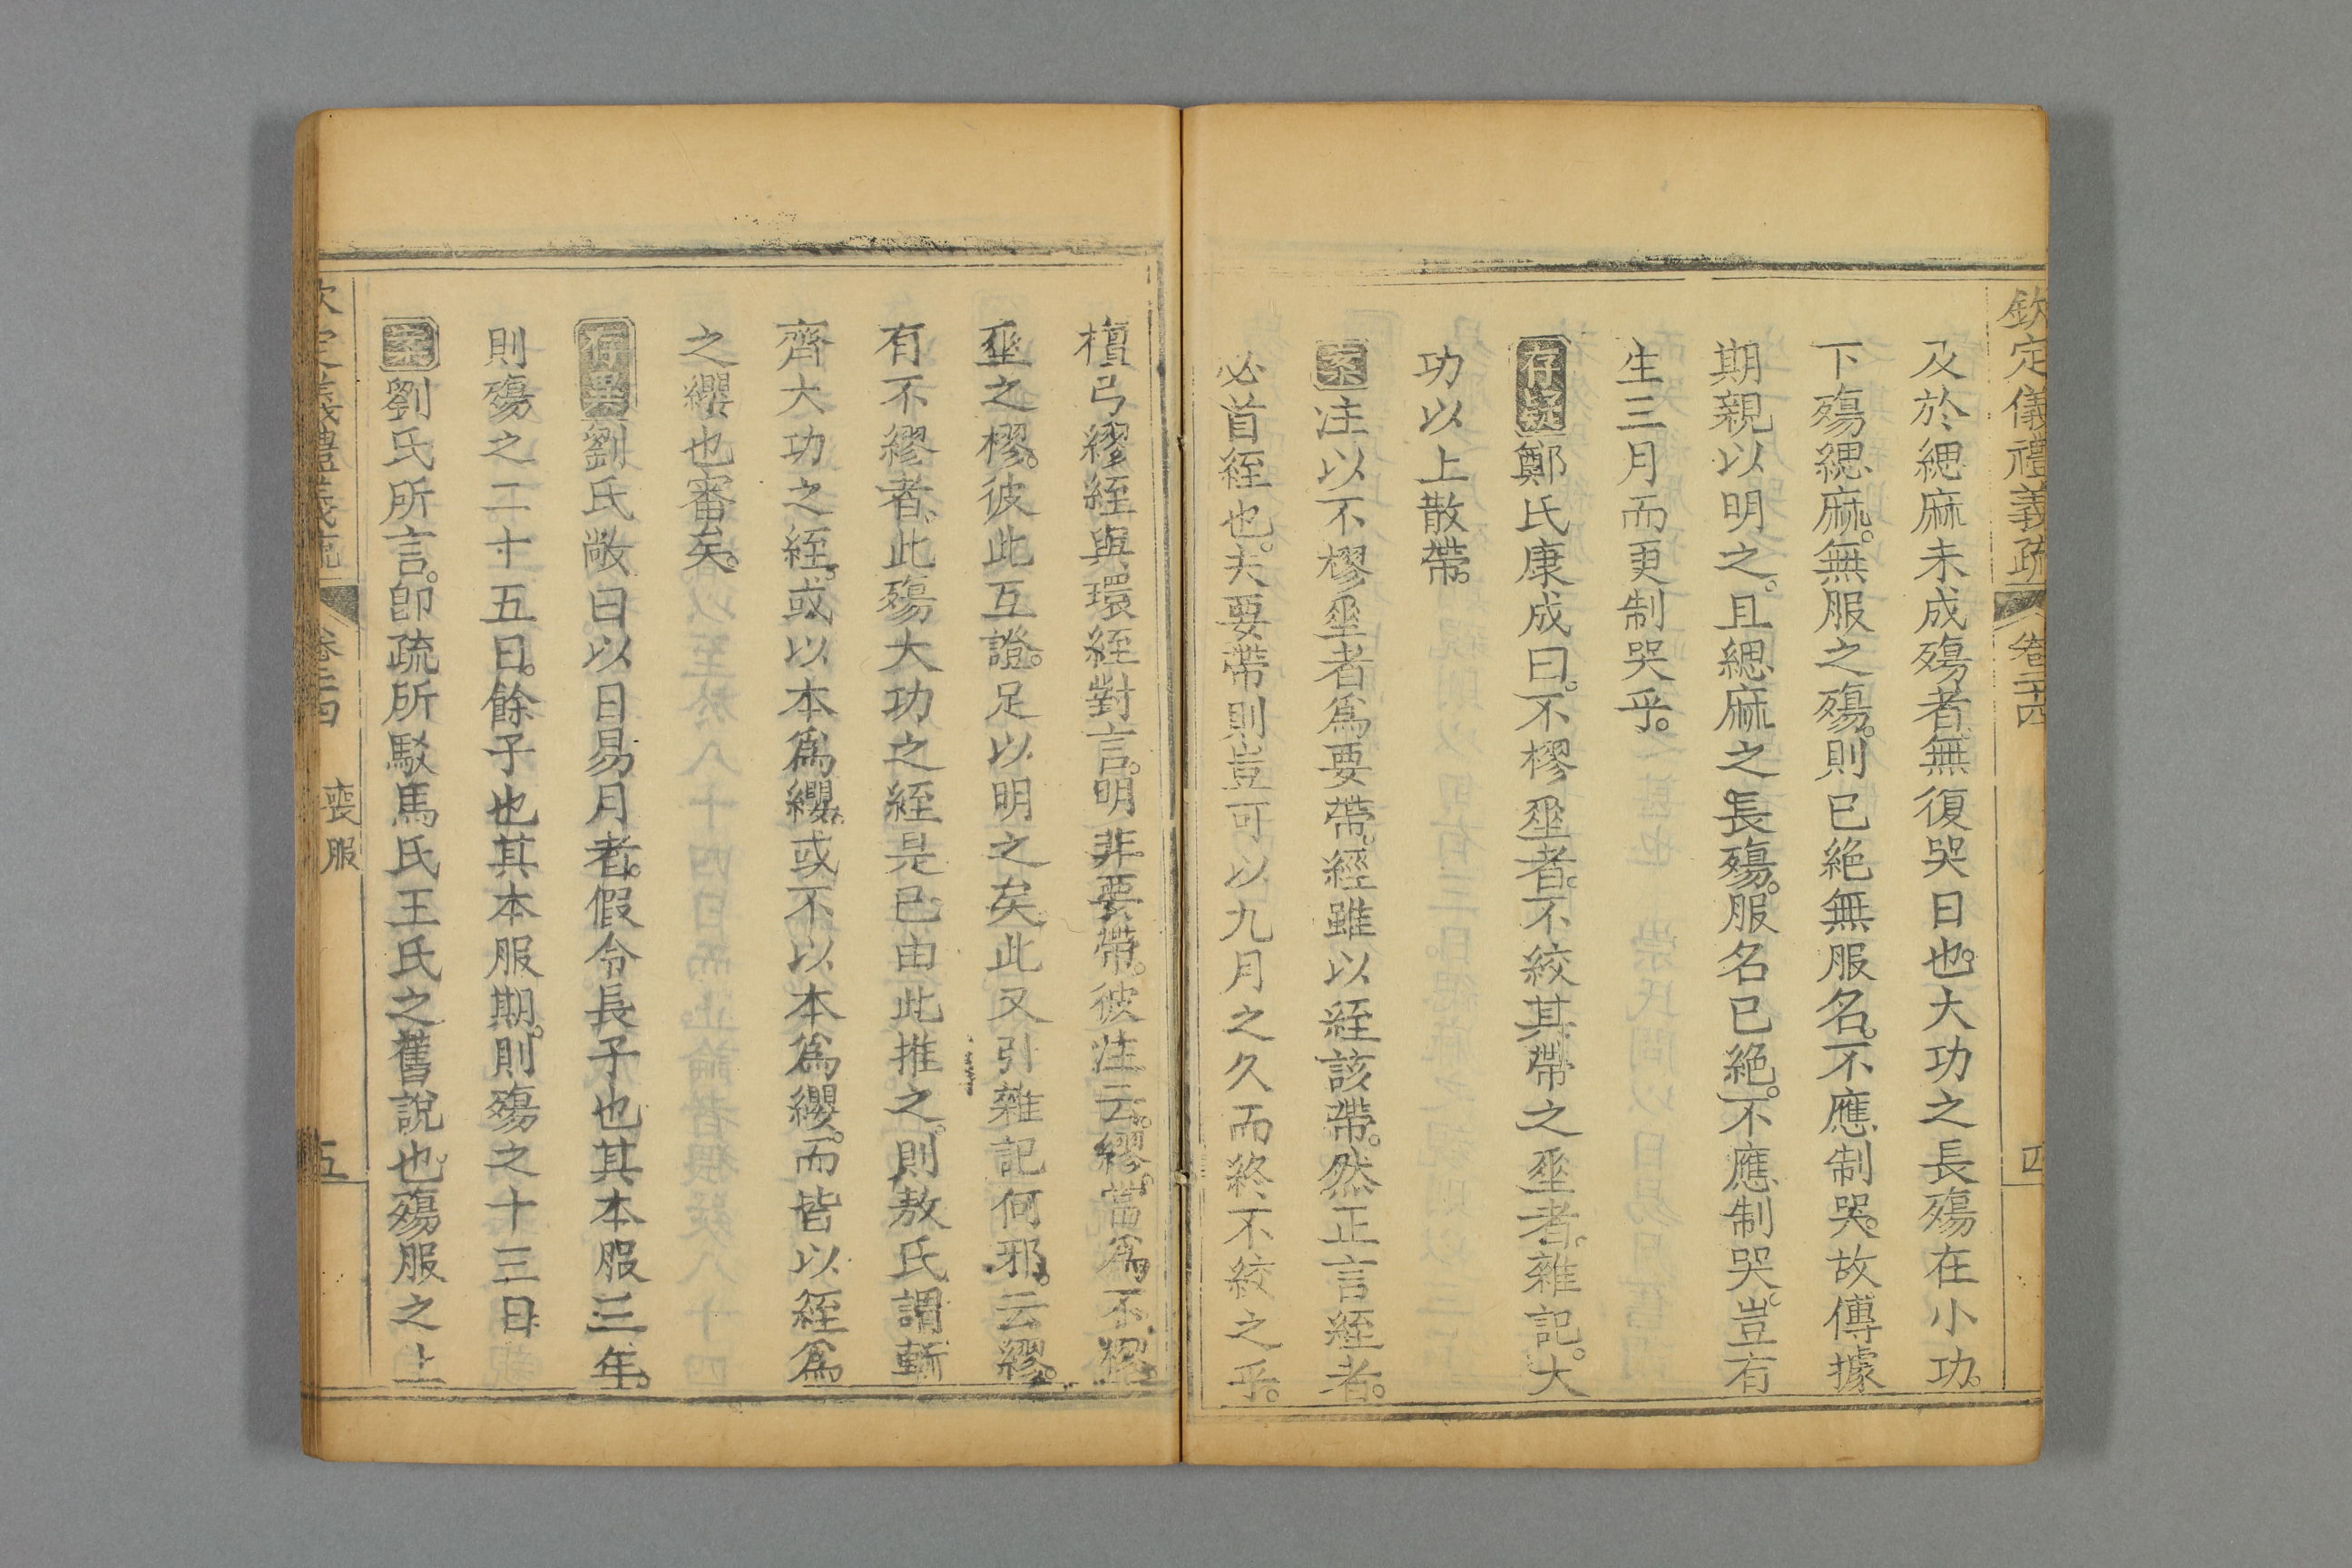 欽定儀禮義疏 卷二十四 四
及於緦麻未成殤者無復哭日也。大功之長殤在小功。
下殤緦麻。無服之殤。則已絕無服名。不應制哭。故傅據
期親以明之。且緦麻之長殤。服名已絕。不應制哭。豈有
生三月而更制哭乎。
存疑鄭氏康成曰。不樛垂者。不絞其帶之垂者。雜記。大
功以上散帶。
案注以不樛垂者爲要帶。經雖以絰該帶。然正言絰者。
必首絰也。夫要帶則豈可以九月之久而終不絞之乎。
檀弓繆絰與環絰對言。明非要帶。彼注云。繆。當爲不樛
垂之樛。彼此互證。足以明之矣。此又引雜記何邪。云繆。
有不繆者。此殤大功之絰是已。由此推之。則敖氏謂斬
齊大功之絰。或以本爲纓。或不以本爲纓。而皆以絰爲
之纓也審矣。
存異劉氏敞曰以日易月者。假令長子也其本服三年。
則殤之二十五日。餘子也其本服期。則殤之十三日
案劉氏所言。卽疏所駁馬氏王氏之舊說也。殤服之上
欽定儀禮義疏 卷二十四 喪服 五